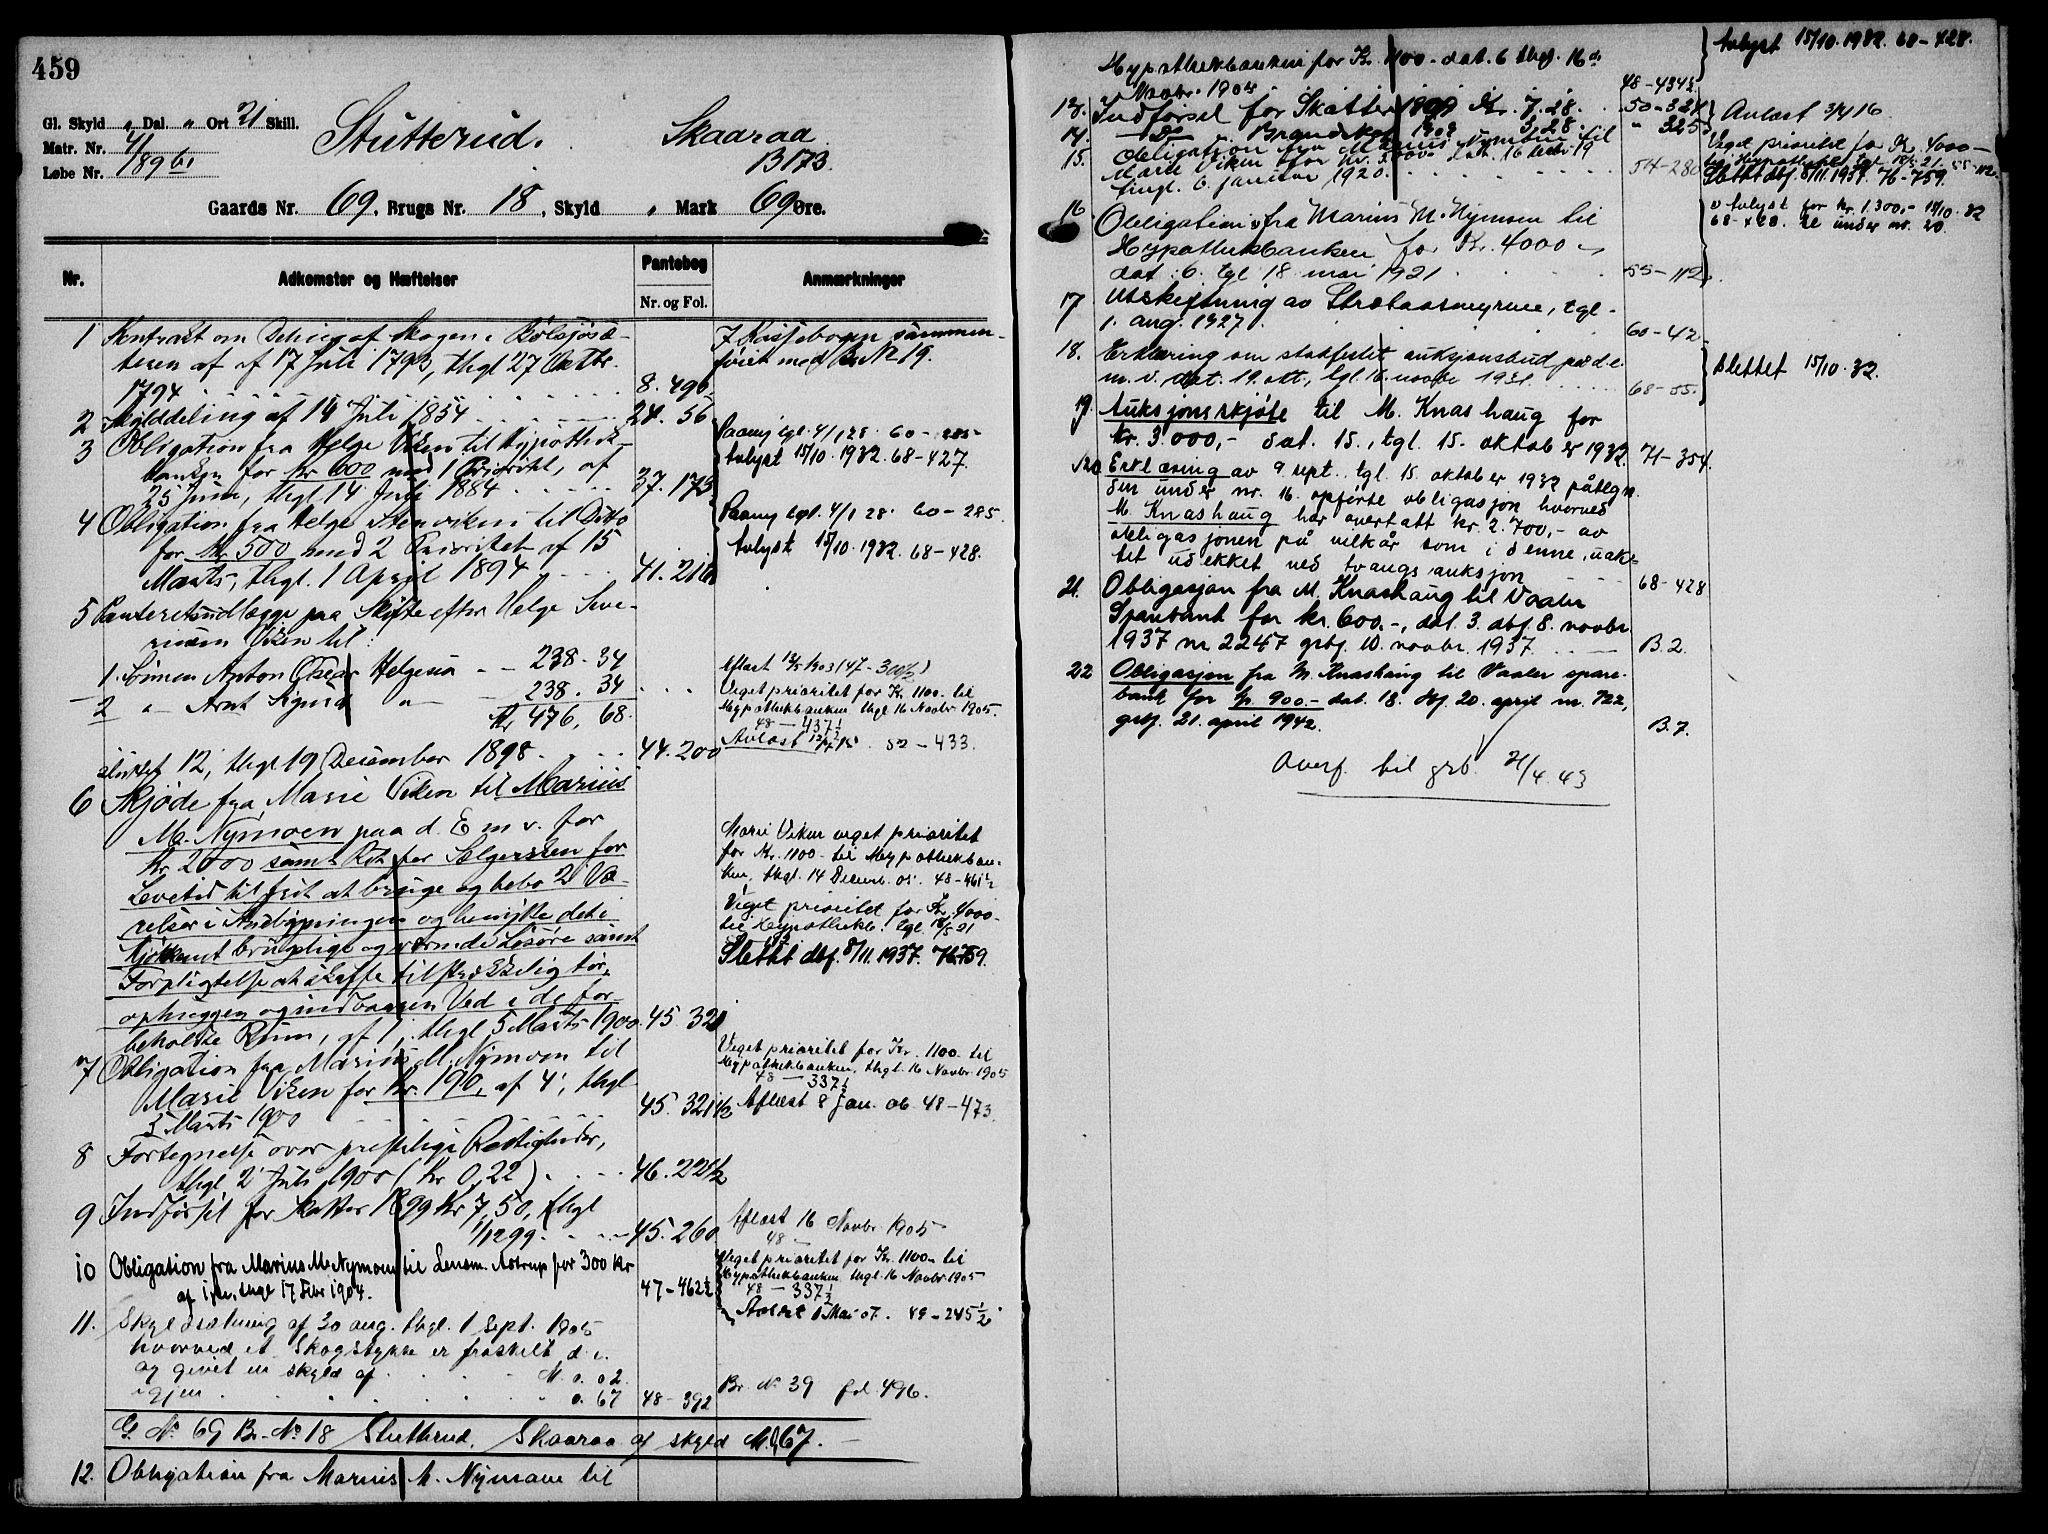 459
Gl. Skyld „ Dal. „ Ort 21 Skill.
Matr. Nr. 41
Løbe Nr. 189 b1
Stutterud. Skaaraa
B 173
Gaards Nr. 69, Brugs Nr. 18, Skyld „ Mark 69 Øre.
Nr. Adkomster og Hæftelser Pantebog Anmærkninger
Nr. og Fol.
1 Kontrakt om Deling af Skogen i
teren af 17 Juli 1793, thgl 27 Octbr.
1794 8. 496
I Kassebogen sammen-
føiet med Br No 19.
2 Skylddeling af 14 Juli 1854 24. 56
3 Obligation fra Helge Viken til Hypothek-
banken for Kr 600 med 1 Prioritet, af
25 Juni, thgl. 14 Juli 1884 37. 173
Paany tgl. 4/1 28. 60-285
Avlyst 15/10. 1932. 68-427.
4 Obligation fra Helge Stenviken til Ditto
for Kr 500 med 2 Prioritet af 15
Marts, thgl. 1 April 1894 41. 216
Paany tgl. 4/1 28. 60-285.
Avlyst 15/10. 1932. 68-428.
5 Panteretsudlægge paa Skifte efter Helge Seve-
rinsen Viken til:
1. Simen Anton Oskar Helgesen - 238. 34
2 " Arnt Sigurd " - 238. 34
Kr 476, 68.
sluttet 12, thgl 19 December 1898 44. 200
Aflæst 1903 (47-300½)
Veget prioritet for Kr. 1100- til
Hypothekbanken thgl 16 Novbr 1905.
48-437½
Avlæst 52-433.
6 Skjøde fra Marie Viken til Marius
M. Nymoen paa d. E m v. for
Kr 2000 samt Ret for Sælgersken for
Levetid til frit at bruge og bebo 2 Væ-
relser i Andbygningen og benytte det i
Kjøkkenet brugelige og værende Løsøre samt
Forpligtelse at skaffe tilstrækkelig tør,
ophuggen og indbaaren Ved i de for-
beholdte Rum, af 1, thgl 5 Marts 1900. 45. 321
Marie Viken veget prioritet
for Kr. 1100- til Hypothekban-
ken, thgl. 14 Decemb. 05. 48-461½
Veget prioritet for Kr. 4000-
til Hypothekb. tgl. 18/5 21
Slettet dbf. 8/11. 1937. 76-759.
7 Obligation fra Marius M. Nymoen til
Marie Viken for Kr. 190, af 4, thgl
5 Marts 1900 45. 321½
Veget prioritet for Kr. 1100- til
Hypothekbanken, thgl. 16 Novbr 1905
48-337½
Aflæst 8 Jan. 06. 48-473.
8 Fortegnelse over præstelige Rettigheder,
thgl 2 Juli 1900 (Kr 0,22) 46. 221½
9 Indførsel for Skatter 1899 Kr 7,50, thgl
1/12 99. 45. 260
Aflæst 16 Novbr 1905
48-
10 Obligation fra Marius M. Nymoen til Lensm. Astrup for 300 Kr
af , thgl 17 Febr 1904. 47-462½
Veget prioritet for Kr. 1100- til
Hypothekbanken thgl. 16 Novbr 1905
48-337½
Avlæst 1 Mai 07. 49-245½
11. Skyldsætning af 30 aug. thgl. 1 sept. 1905
hvorved et Skogstykke er fraskilt d. e.
og givet en skyld af M. 0. 02
igjen 0. 67 48-392
Br. No 39 fol. 496.
G. No 69 Br. No 18 Stutterud, Skaaraa af skyld M. 0,67.
12. Obligation fra Marius M. Nymoen til
Hypothekbanken for Kr. 1100- dat. 6 thgl. 16de
Novbr. 1905 48-434½
Avlyst 15/10. 1932. 68-428.
13. Indførsel for Skatter 1899 Kr. 7.28. 50-324
14. Do - Brandskat 1909 3.28 " 325
Avlæst 3/4 16
15. Obligation fra Marius Nymoen til
Marie Viken for Kr. dat. 16 decbr 19
tingl. 6 januar 1920. 54-280
Veget prioritet for Kr. 4000-
til Hypothekb. tgl. 18/5 21. 55-112.
Slettet dbf. 8/11. 1937. 76-759.
16 Obligation fra Marius M. Nymoen til
Hypothekbanken for Kr. 4000-
dat. 6. tgl 18. mai 1921 55-112
Avlyst for Kr. 1.300,- 15/10. 32
68-428. Se under nr. 20.
17 Utskiftning av , tgl.
1. aug. 1927. 60-42
18. Erklæring om stadfestet auksjonsbud på d. e.
m. v. dat. 19. okt., tgl. 16. novbr 1931. 68-55.
Slettet 15/10. 32.
19. Auksjonsskjøte til M. Knashaug for
kr. 3.000,- dat. 15., tgl. 15. oktober 1932. 71-354.
20 Erklæring av 9 sept. tgl. 15. oktober 1932 påtegn.
den under nr. 16. opførte obligasjon hvorved
M. Knashaug har overtatt kr. 2.700,- av
obligasjonen på vilkår som i denne, uak-
tet udekket ved tvangsauksjon 68-428
21. Obligasjon fra M. Knashaug til Vaaler
Sparebank for kr. 600.-, dat. 3. dbf. 8. novbr.
1937 nr 2247 grbf. 10. novbr. 1937. B. 2.
22 Obligasjon fra M. Knashaug til Vaaler spare-
bank for kr. 900.- dat. 18. dbf. 20. april nr. 722,
grbf. 21. april 1942. B. 7.
Overf. til grb. 21/4. 43